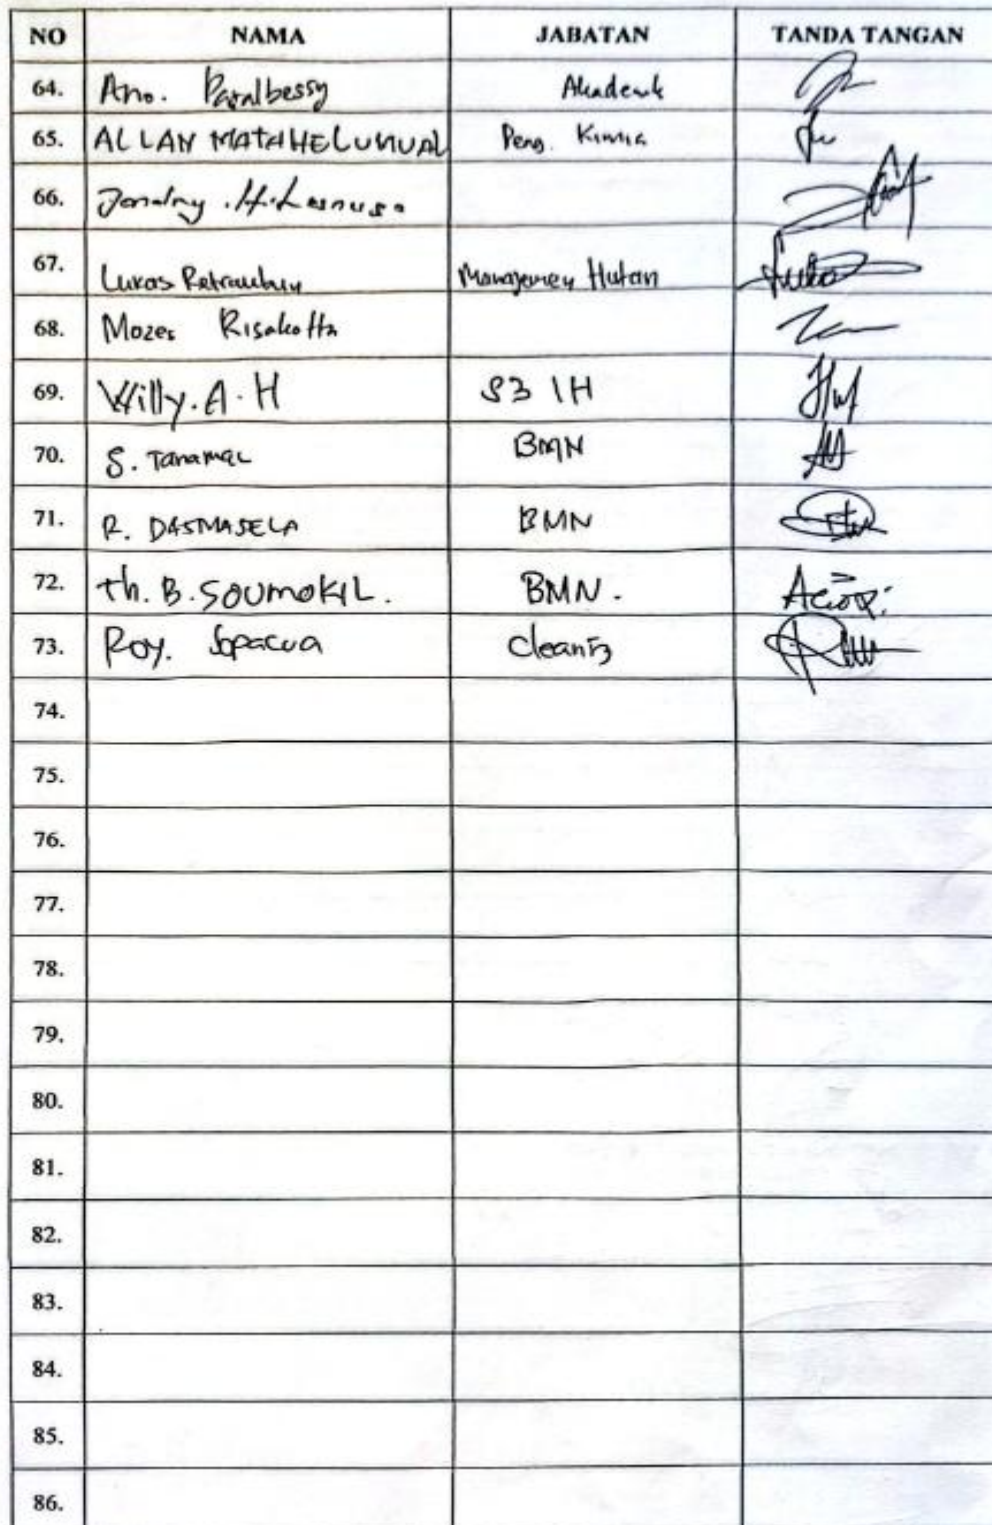 NO NAMA JABATAN TANDA TANGAN
64. Ano. Akademik
65. ALLAN MATAHELUMUAL Peng. Kimia
66.
67. Lukas Retraubun Manajemen Hutan
68. Mozes Risakotta
69. Willy. A. H S3 IH
70. S. Tanamal BMN
71. R. DASMASELA BMN
72. th. B. SOUMOKIL. BMN.
73. Roy. Sopacua Cleaning
74.
75.
76.
77.
78.
79.
80.
81.
82.
83.
84.
85.
86.